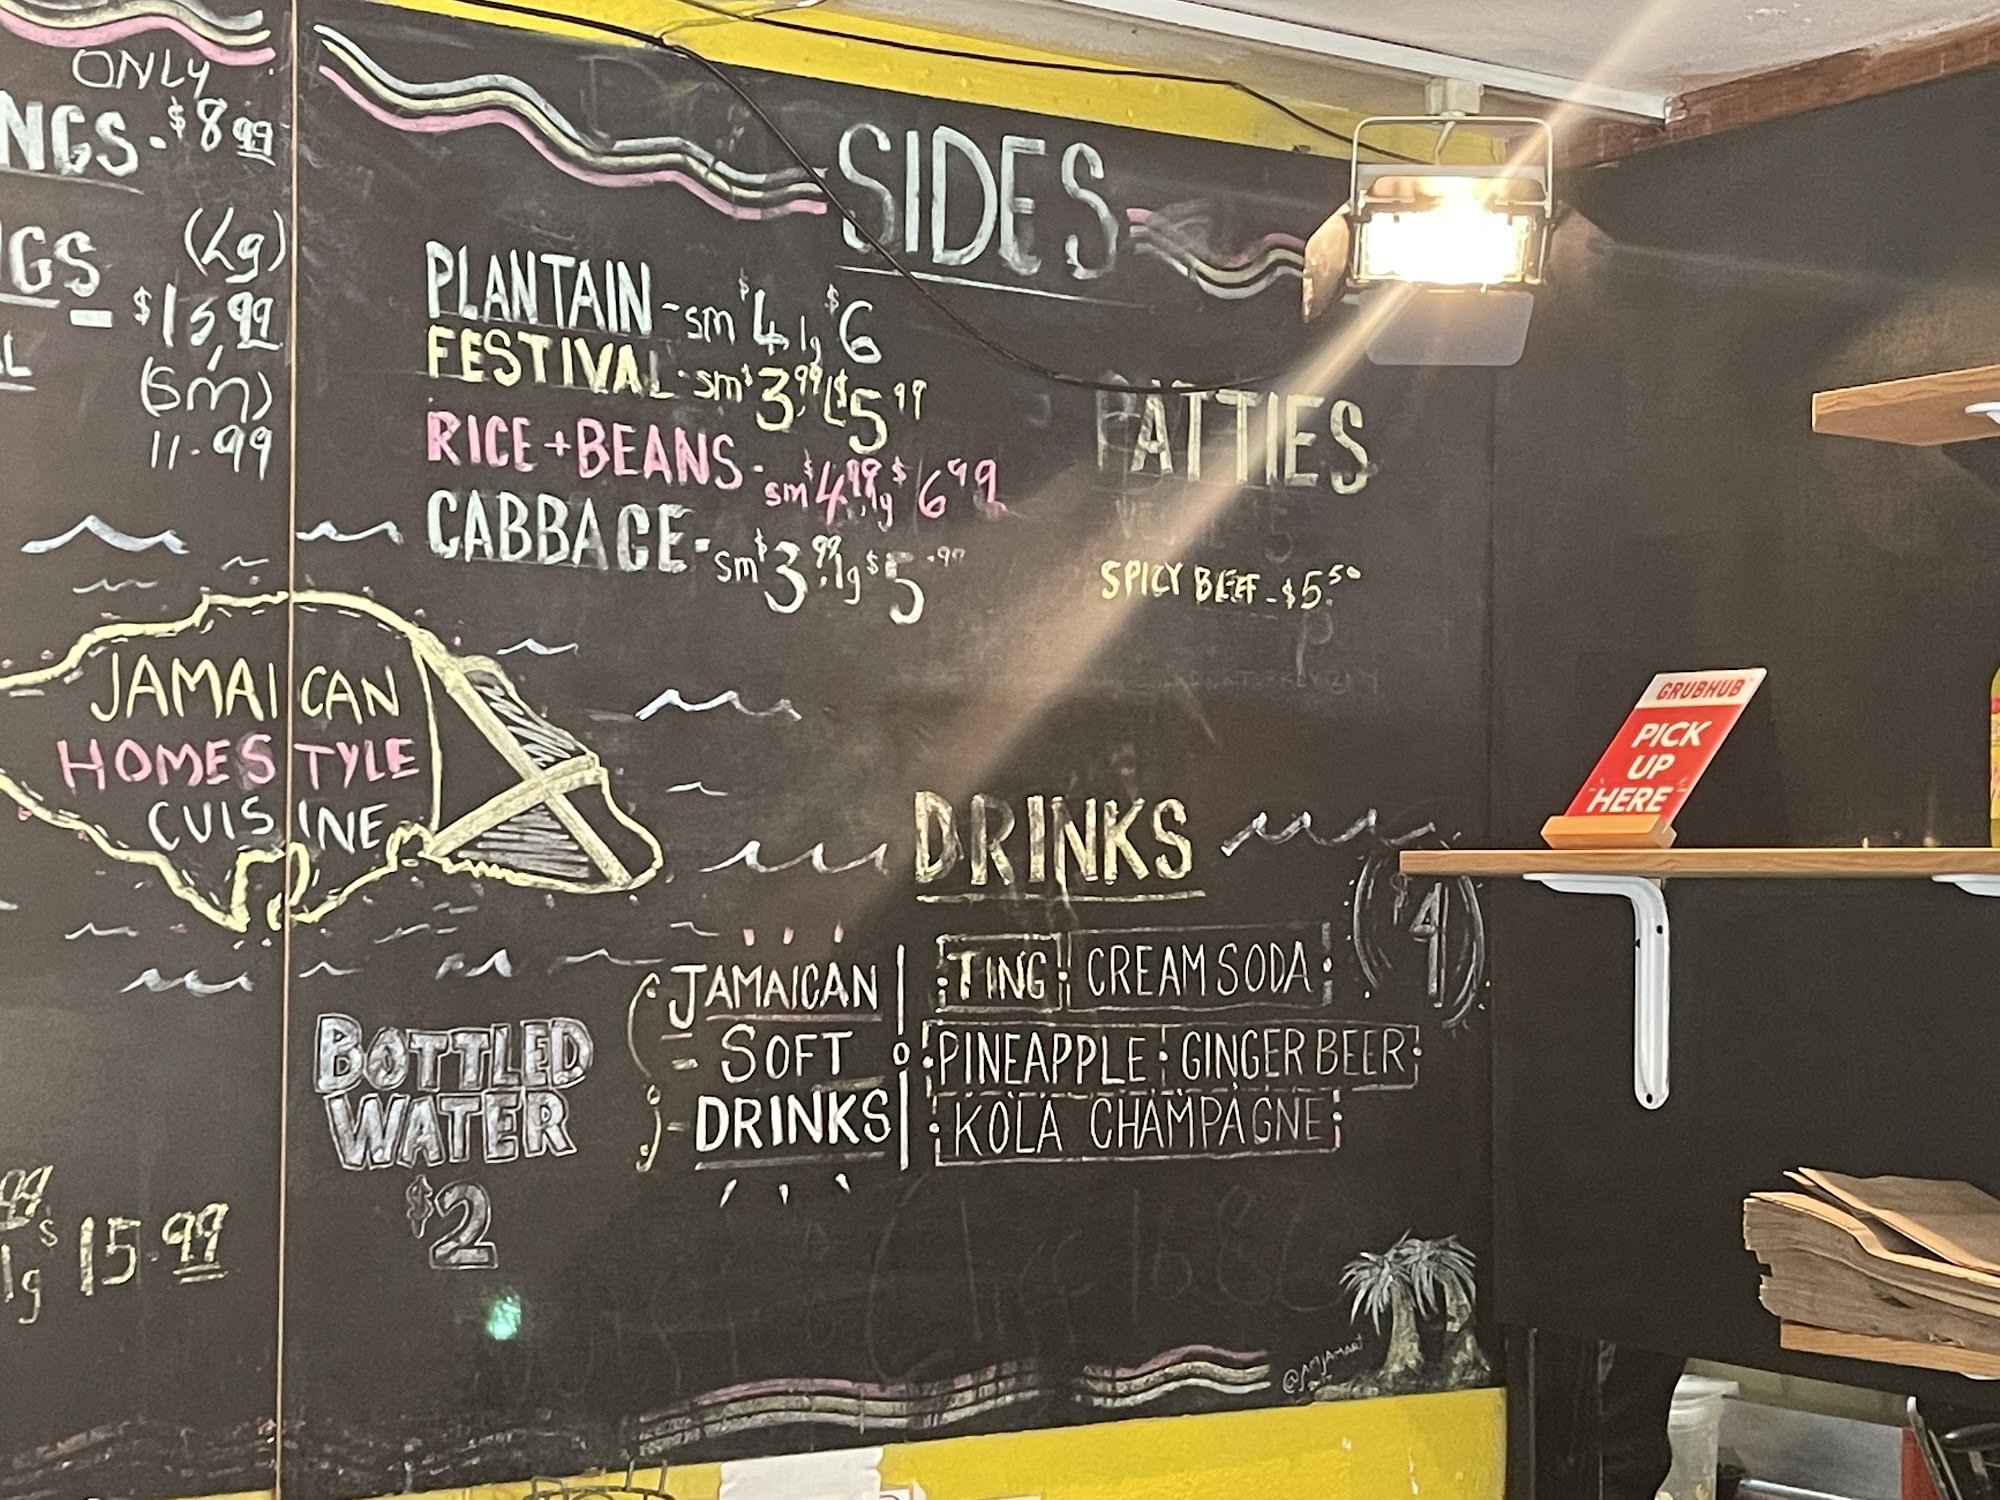 ONLY
NGS - $8.99
GS (Lg)
$15.99
(Sm)
11.99
SIDES
PLANTAIN - sm $4, lg $6
FESTIVAL - sm $3.99 L $5.99
RICE + BEANS - sm $4.99, lg $6.99
CABBAGE - sm $3.99, lg $5.99
PATTIES
SPICY BEEF - $5.50
JAMAICAN
HOMESTYLE
CUISINE
DRINKS
$4
BOTTLED
WATER
$2
JAMAICAN
SOFT
DRINKS
TING CREAM SODA
PINEAPPLE GINGER BEER
KOLA CHAMPAGNE
lg $15.99
GRUBHUB
PICK
UP
HERE